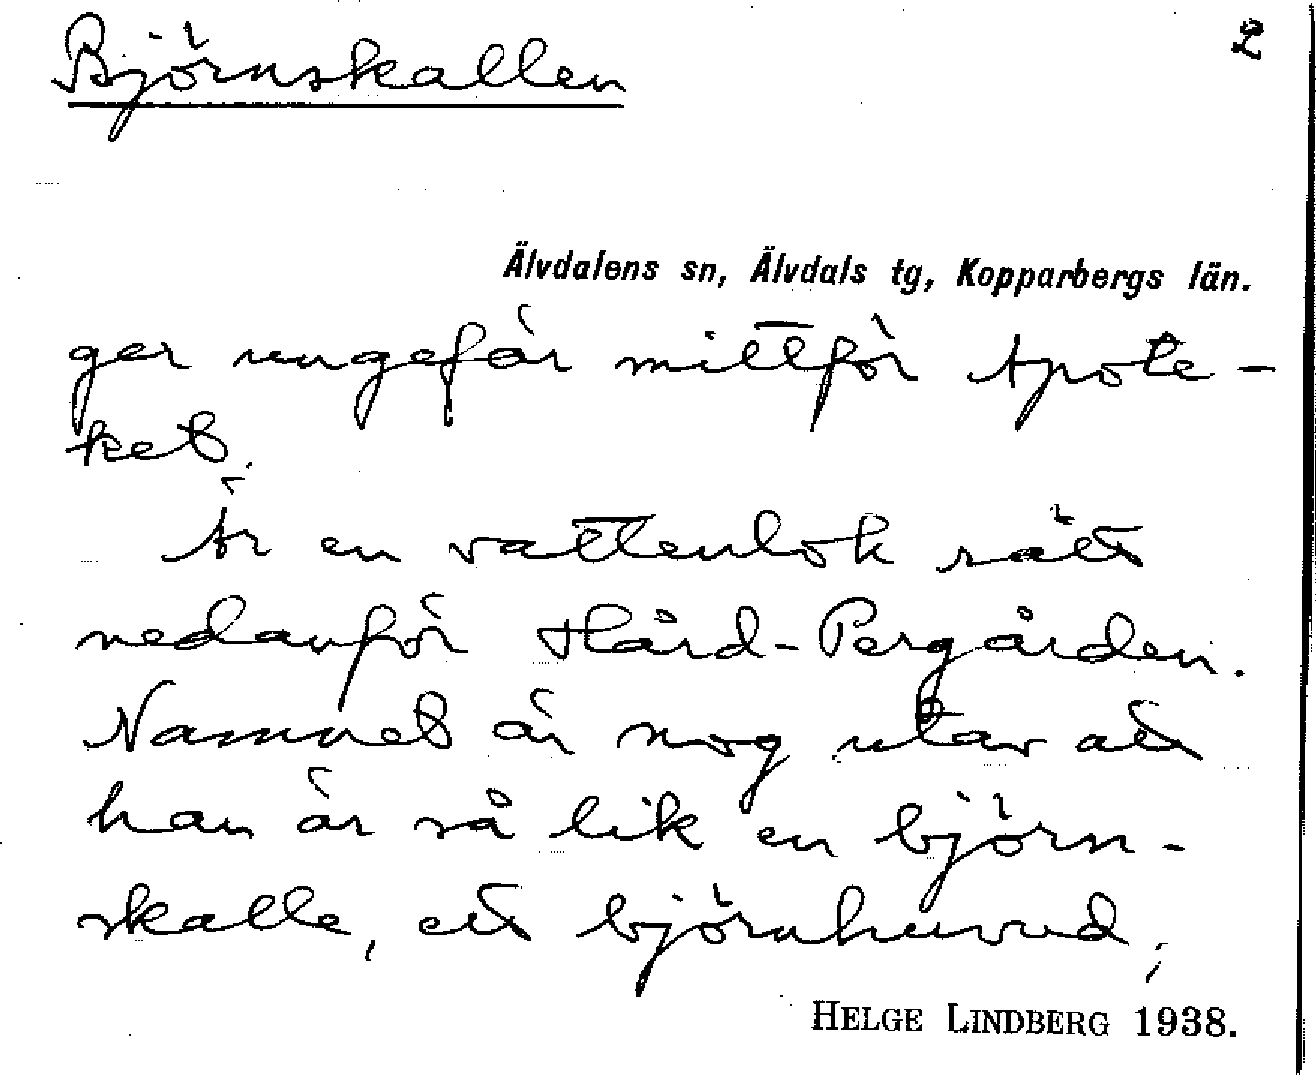 Björnskallen 2
Älvdalens sn, Älvdals tg, Kopparbergs län.
ger ungefär mittför Apote-
ket.
Är en vattenlok rätt
nedanför Hård-Pergården.
Namnet är nog utav att
han är så lik en björn-
skalle, ett björnhuvud;
HELGE LINDBERG 1938.